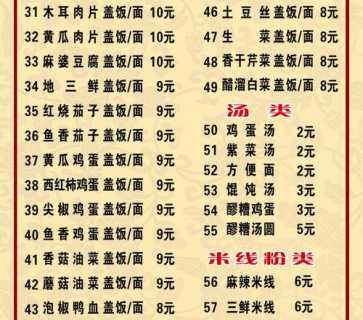 31 木耳肉片盖饭/面 10元
32 黄瓜肉片盖饭/面 10元
33 麻婆豆腐盖饭/面 10元
34 地三鲜盖饭/面 9元
35 红烧茄子盖饭/面 9元
36 鱼香茄子盖饭/面 9元
37 黄瓜鸡蛋盖饭/面 9元
38 西红柿鸡蛋盖饭/面 9元
39 尖椒鸡蛋盖饭/面 9元
40 鱼香鸡蛋盖饭/面 9元
41 香菇油菜盖饭/面 9元
42 蘑菇油菜盖饭/面 9元
43 泡椒鸭血盖饭/面 8元
46 土豆丝盖饭/面 8元
47 生菜盖饭/面 8元
48 香干芹菜盖饭/面 8元
49 醋溜白菜盖饭/面 8元
汤类
50 鸡蛋汤 2元
51 紫菜汤 2元
52 方便面 2元
53 馄饨汤 3元
54 醪糟鸡蛋 3元
55 醪糟汤圆 5元
米线粉类
56 麻辣米线 6元
57 三鲜米线 6元